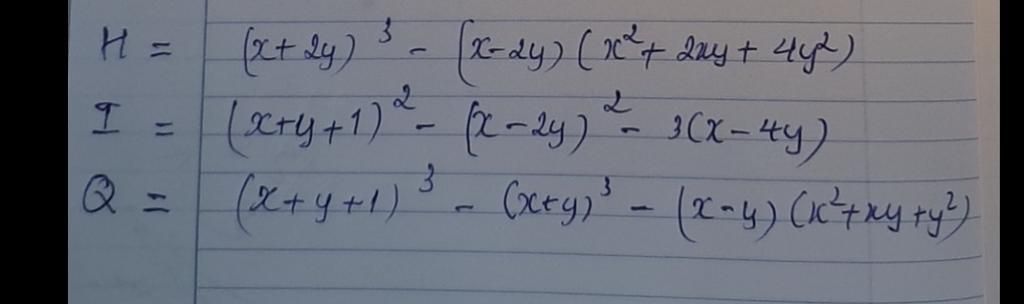 H = (x+2y)³ - (x-2y)(x²+2xy+4y²)
I = (x+y+1)² - (x-2y)² - 3(x-4y)
Q = (x+y+1)³ - (x+y)³ - (x-y)(x²+xy+y²)